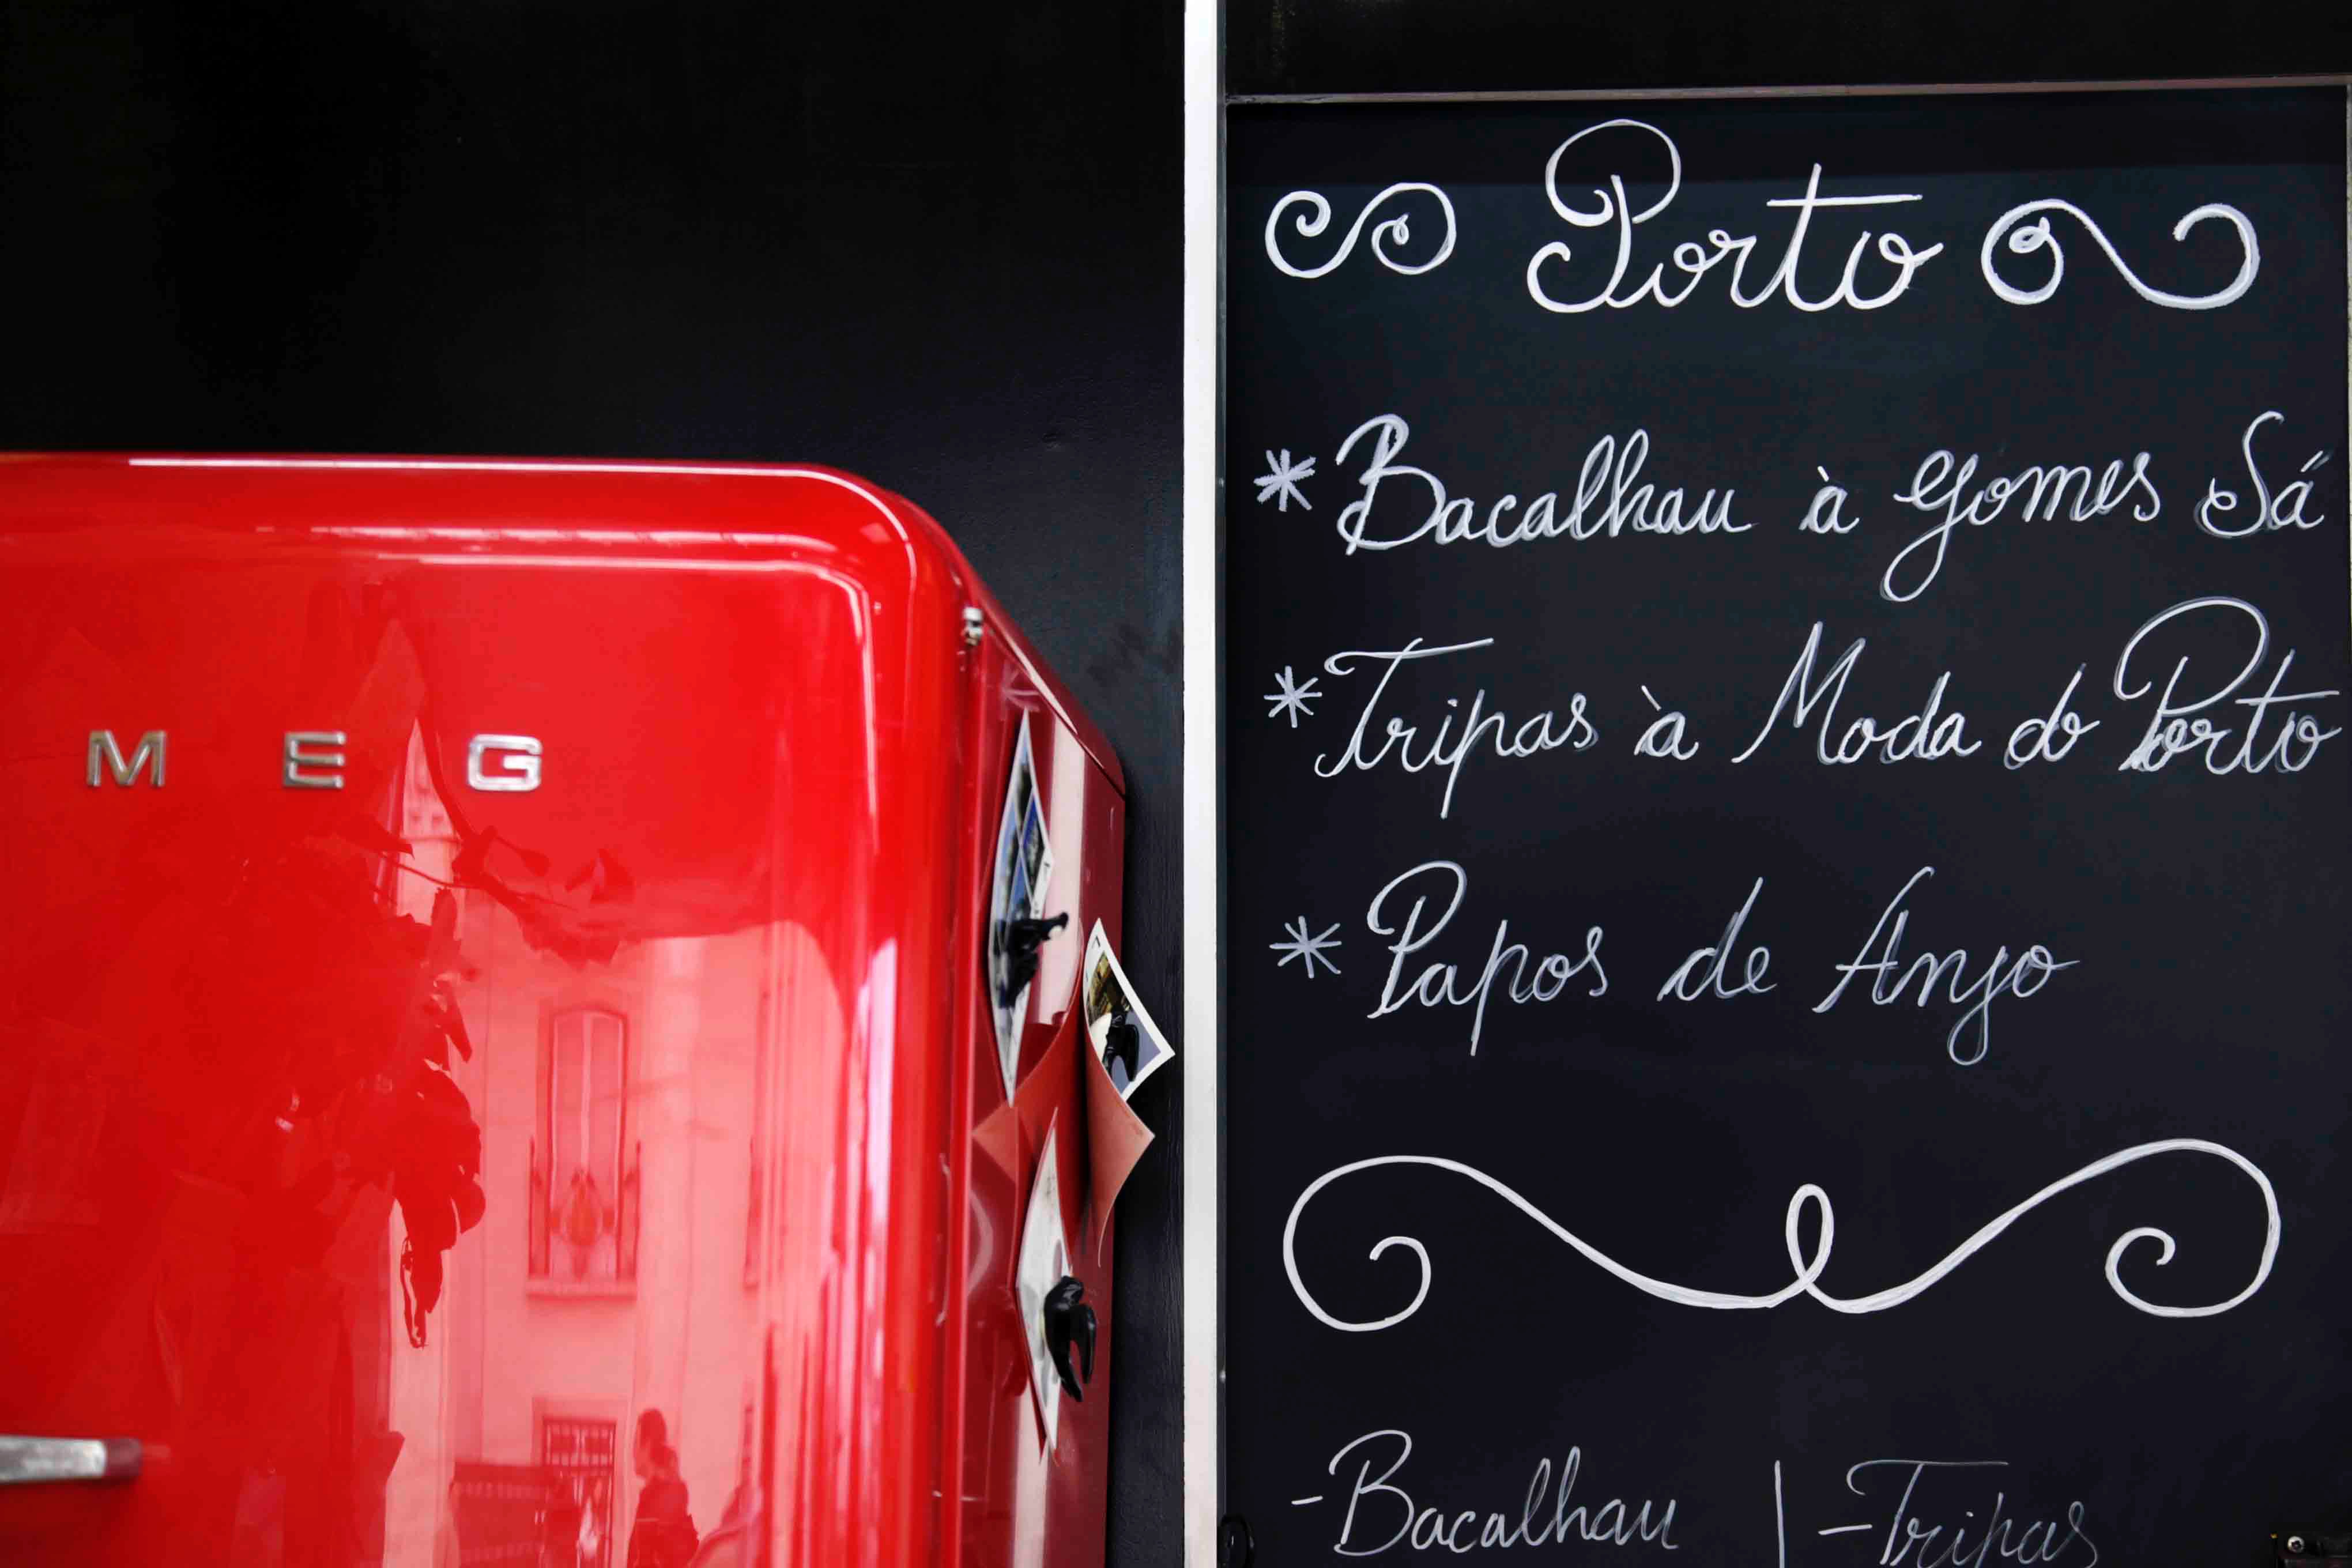 MEG
Porto
* Bacalhau à Gomes Sá
* Tripas à Moda do Porto
* Papos de Anjo
- Bacalhau | - Tripas